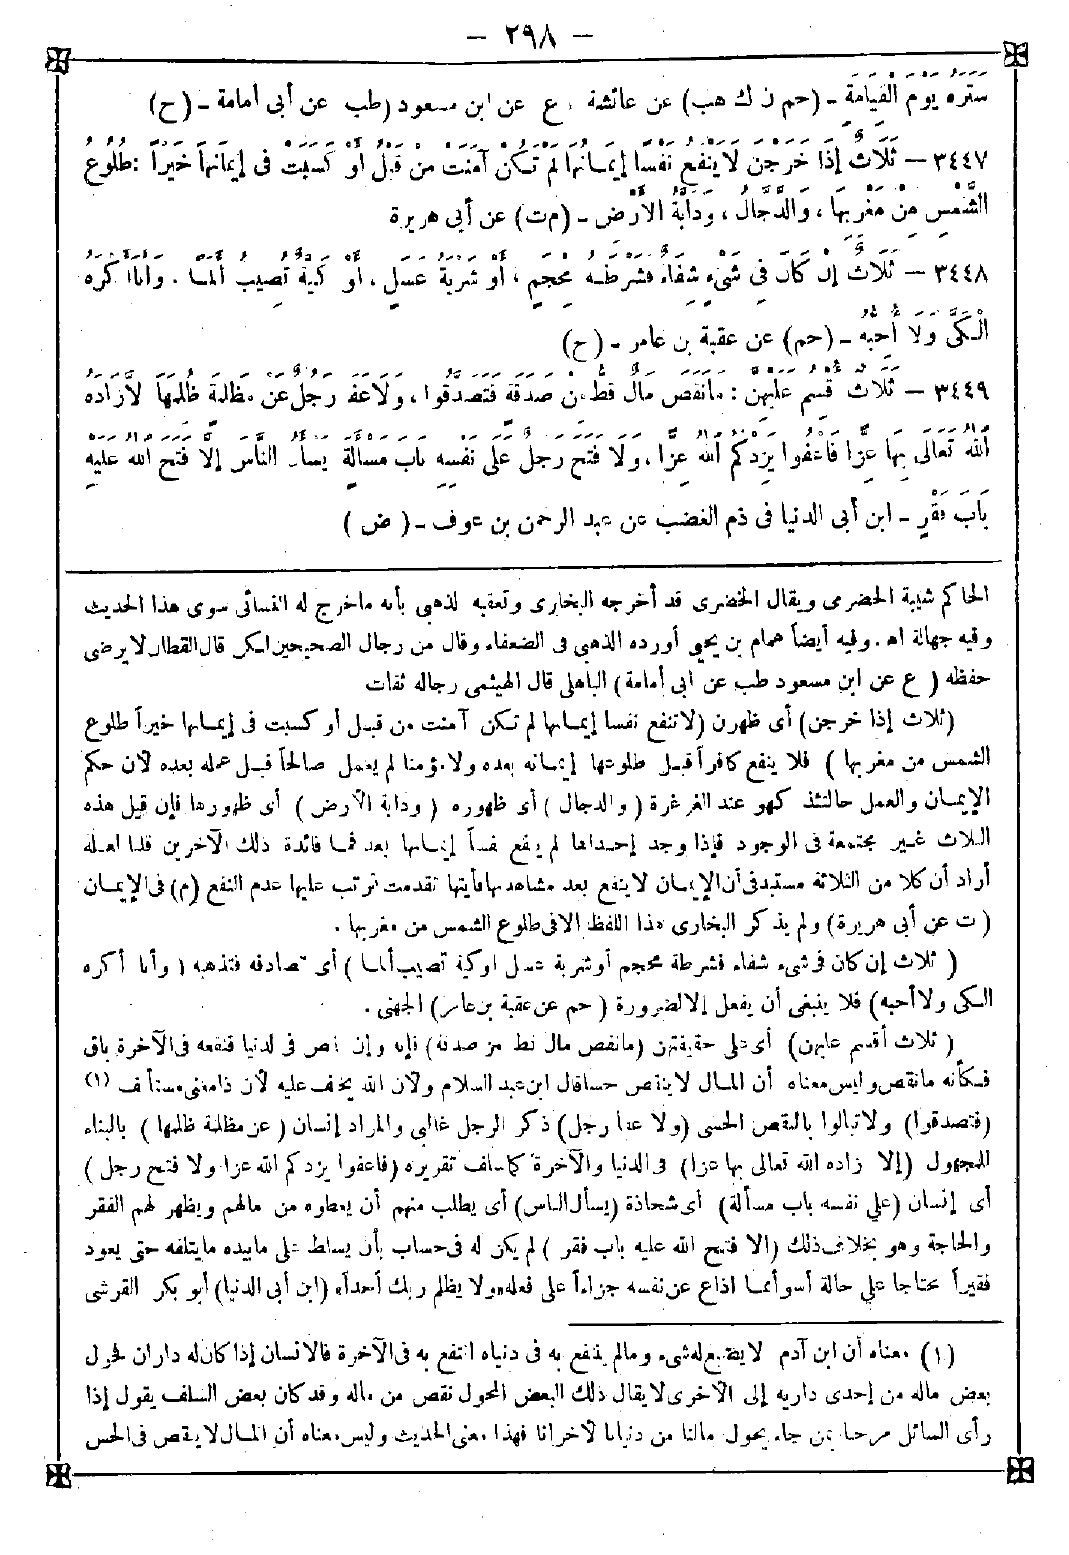 - ٢٩٨ -
سَتَرَهُ يَوْمَ الْقِيَامَةِ - (حم ن ك هب) عن عائشة، ع عن ابن مسعود (طب عن أبى أمامة - (ح)
٣٤٤٧ - ثَلَاثٌ إِذَا خَرَجْنَ لَا يَنْفَعُ نَفْسًا إِيمَانُهَا لَمْ تَكُنْ آمَنَتْ مِنْ قَبْلُ أَوْ كَسَبَتْ فِى إِيمَانِهَا خَيْرًا: طُلُوعُ
الشَّمْسِ مِنْ مَغْرِبِهَا، وَالدَّجَّالُ، وَدَابَّةُ الْأَرْضِ - (م ت) عن أبى هريرة
٣٤٤٨ - ثَلَاثٌ إِنْ كَانَ فِى شَىْءٍ شِفَاءٌ فَشَرْطَةُ مِحْجَمٍ، أَوْ شَرْبَةُ عَسَلٍ، أَوْ كَيَّةٌ تُصِيبُ أَلَمًا. وَأَنَا أَكْرَهُ
الْكَىَّ وَلَا أُحِبُّهُ - (حم) عن عقبة بن عامر - (ح)
٣٤٤٩ - ثَلَاثٌ أُقْسِمُ عَلَيْهِنَّ: مَانَقَصَ مَالٌ قَطُّ مِنْ صَدَقَةٍ فَتَصَدَّقُوا، وَلَا عَفَا رَجُلٌ عَنْ مَظْلِمَةٍ ظُلِمَهَا إِلَّا زَادَهُ
اللهُ تَعَالَى بِهَا عِزًّا فَاعْفُوا يَزِدْكُمُ اللهُ عِزًّا، وَلَا فَتَحَ رَجُلٌ عَلَى نَفْسِهِ بَابَ مَسْأَلَةٍ يَسْأَلُ النَّاسَ إِلَّا فَتَحَ اللهُ عَلَيْهِ
بَابَ فَقْرٍ - ابن أبى الدنيا فى ذم الغضب عن عبد الرحمن بن عوف - (ض)
الحاكم شيبة الحضرمى ويقال الخضرى قد أخرجه البخارى وتعقبه الذهبى بأنه ماخرج له النسائى سوى هذا الحديث
وفيه جهالة اه. وفيه أيضاً همام بن يحيى أورده الذهبى فى الضعفاء وقال من رجال الصحيحين لكن قال القطان لا يرضى
حفظه (ع عن ابن مسعود طب عن ابى أمامة) الباهلى قال الهيثمى رجاله ثقات
(ثلاث إذا خرجن) أى ظهرن (لا تنفع نفسا إيمانها لم تكن آمنت من قبل أو كسبت فى إيمانها خيراً طلوع
الشمس من مغربها) فلا ينفع كافراً قبل طلوعها إيمانه بعده ولا مؤمنا لم يعمل صالحاً قبل عمله بعده لأن حكم
الإيمان والعمل حالتئذ كهو عند الغرغرة (والدجال) أى ظهوره (ودابة الأرض) أى ظهورها فإن قيل هذه
الثلاث غير مجتمعة فى الوجود فإذا وجد إحداها لم ينفع نفساً إيمانها بعد فما فائدة ذلك الآخرين قلنا لعله
أراد أن كلا من الثلاثة مستبد فى أن الإيمان لا ينفع بعد مشاهدتها فأيتها تقدمت ترتب عليها عدم النفع (م) فى الإيمان
(ت عن أبى هريرة) ولم يذكر البخارى هذا اللفظ الا فى طلوع الشمس من مغربها.
(ثلاث إن كان فى شىء شفاء فشرطة محجم أو شربة عسل أو كية تصيب ألما) أى تصادفه فتذهبه (وأنا أكره
الكى ولا أحبه) فلا ينبغى أن يفعل إلا لضرورة (حم عن عقبة بن عامر) الجهنى.
(ثلاث أقسم عليهن) أى على حقيقتهن (مانقص مال قط من صدقة) فإنه وإن نقص فى الدنيا فنفعه فى الآخرة باق
فكأنه مانقص وليس معناه أن المال لا ينقص حسا قال ابن عبد السلام ولأن الله يخلف عليه لأن ذا معنى مستأنف (١)
(فتصدقوا) ولا تبالوا بالنقص الحسى (ولا عفا رجل) ذكر الرجل غالبى والمراد إنسان (عن مظلمة ظلمها) بالبناء
للمجهول (إلا زاده الله تعالى بها عزا) فى الدنيا والآخرة كما سلف تقريره (فاعفوا يزدكم الله عزا ولا فتح رجل)
أى إنسان (على نفسه باب مسألة) أى شحاذة (يسأل الناس) أى يطلب منهم أن يعطوه من مالهم ويظهر لهم الفقر
والحاجة وهو بخلاف ذلك (الا فتح الله عليه باب فقر) لم يكن له فى حساب بأن يسلط على مابيده مايتلفه حتى يعود
فقيراً محتاجا على حالة أسوأ مما اذاع عن نفسه جزاءاً على فعله «ولا يظلم ربك أحداً» (ابن أبى الدنيا) أبو بكر القرشى
(١) معناه أن ابن آدم لا يضيع له شىء ومالم ينتفع به فى دنياه انتفع به فى الآخرة فالانسان إذا كان له داران فحول
بعض ماله من إحدى داريه إلى الأخرى لا يقال ذلك البعض المحول نقص من ماله وقد كان بعض السلف يقول إذا
رأى السائل مرحبا بمن جاء يحول مالنا من دنيانا لأخرانا فهذا معنى الحديث وليس معناه أن المال لا ينقص فى الحس